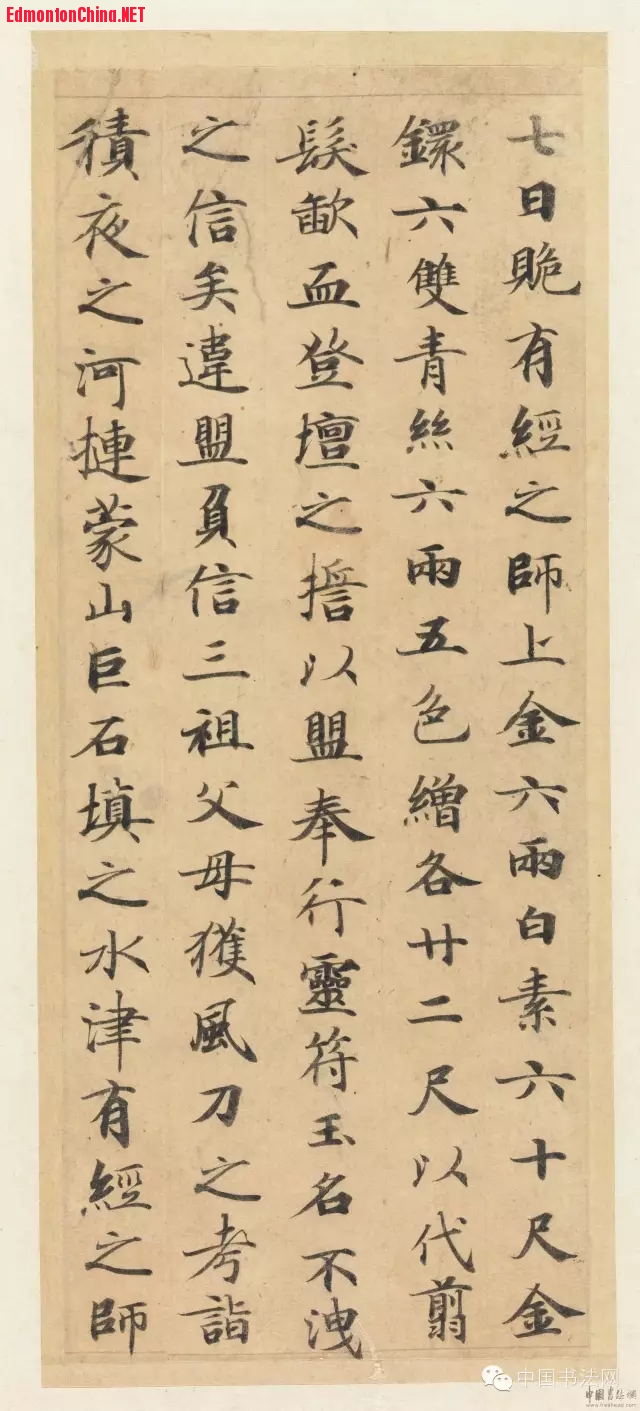 EdmontonChina.NET
七日賟有經之師上金六兩白素六十尺金
鐶六雙青絲六兩五色繒各廿二尺以代翦
髮歃血登壇之誓以盟奉行靈符玉名不洩
之信矣違盟負信三祖父母獲風刀之考詣
積夜之河摙蒙山巨石填之水津有經之師
中国书法网
中国书法网
www.freehead.com